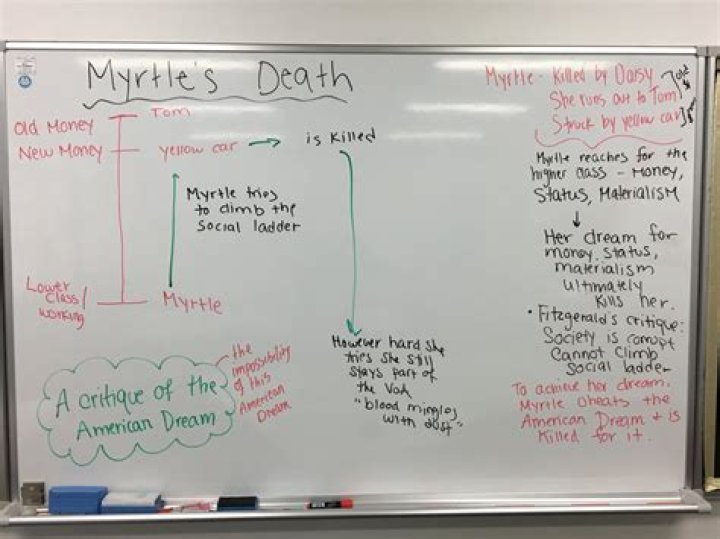 Myrtle's Death
Tom
Old Money
New Money
yellow car
is killed
Myrtle tries
to climb the
social ladder
Lower
class/
working
Myrtle
However hard she
tries she still
stays part of
the VoA
"blood mingles
with dust"
A critique of the
American Dream
the
impossibility
of this
American
Dream
Myrtle - Killed by Daisy
She runs out to Tom
Struck by yellow car
Myrtle reaches for the
higher class - money,
Status, Materialism
Her dream for
money, status,
materialism
ultimately
kills her.
• Fitzgerald's critique:
Society is corrupt
Cannot climb
social ladder
To achieve her dream,
Myrtle cheats the
American Dream + is
killed for it.